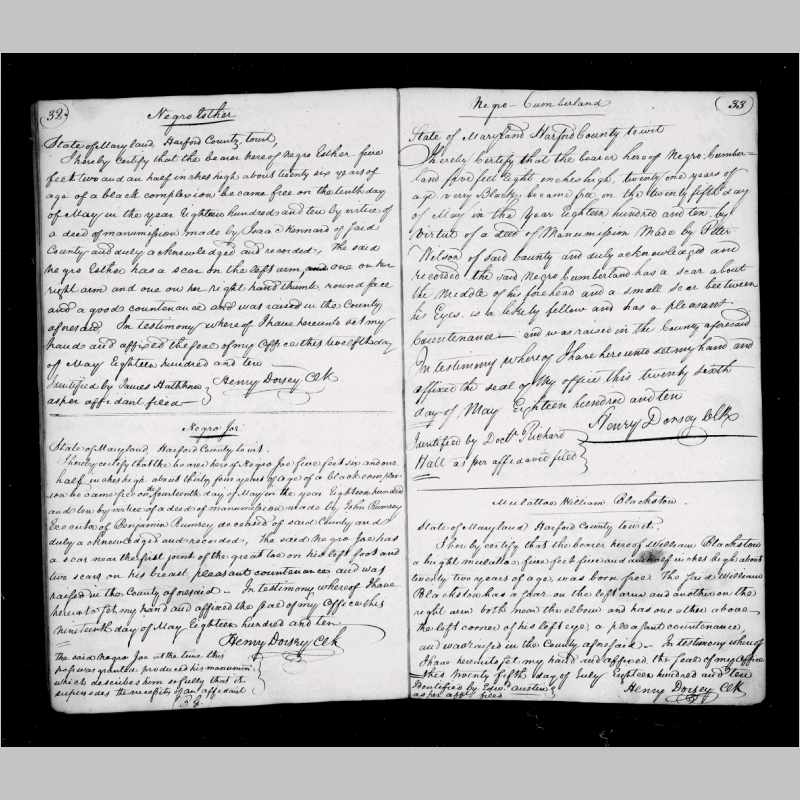 32.
Negro Esther
State of Maryland Harford County, towit,
I hereby certify that the bearer hereof Negro Esther five
feet two and an half inches high about twenty six years of
age of a black complexion became free on the tenth day
of May in the year Eighteen hundred and ten by virtue of
a deed of manumission made by Isaac Kennard of said
County and duly acknowledged and recorded, The said
Negro Esther has a scar on the left arm, and one on her
right arm and one on her right hand thumb round face
and a good countenance and was raised in the County
aforesaid. In testimony whereof I have hereunto set my
hand and affixed the seal of my Office this twelfth day
of May Eighteen hundred and ten
Identified by James
as per affidavit filed
Henry Dorsey Clk
Negro Joe
State of Maryland, Harford County towit.
I hereby certify that the bearer hereof Negro Joe five feet six and one
half inches high about thirty four years of age of a black complex-
ion became free on the fourteenth day of May in the year Eighteen hundred
and ten by virtue of a deed of manumission made by John Rumsey
Executor of Benjamin Rumsey deceased of said County and
duly acknowledged and recorded, The said Negro Joe has
a scar near the first joint of the great toe on his left foot and
two scars on his breast, pleasant countenance and was
raised in the County aforesaid - In testimony whereof I have
hereunto set my hand and affixed the seal of my Office this
nineteenth day of May Eighteen hundred and ten
Henry Dorsey Clk
The said Negro Joe at the time this
pass was granted produced his manumin
which describes him so fully that it
supersedes the necessity of an affidavit
33
Negro Cumberland
State of Maryland Harford County to wit
I hereby Certify that the bearer hereof Negro Cumber=
land five feet Eight inches high, twenty one years of
age a very Black, became free on the twenty fifth day
of May in the Year Eighteen hundred and ten, by
Virtue of a deed of Manumission Made by Peter
Nelson of said County and duly acknowledged and
recorded the said Negro Cumberland has a scar about
the Middle of his forehead and a small scar between
his Eyes. is a likely fellow and has a pleasant
Countenance - and was raised in the County aforesaid
In testimony whereof I have hereunto set my hand and
affixed the seal of My office this twenty sixth
day of May Eighteen hundred and ten
Henry Dorsey Clk
Identified by Doctr. Richard
Hall as per affidavit filed
Mulattoe William Blackston.
State of Maryland Harford County to wit.
I hereby certify that the bearer hereof William Blackston
a bright mulatto five feet five and an half inches high about
twenty two years of age, was born free. The said William
Blackston has a scar on the left arm and another on the
right arm both near the elbow and has one other above
the left corner of his left eye, a pleasant countenance,
and was raised in the County aforesaid - In testimony whereof
I have hereunto set my hand and affixed the seal of my office
this twenty fifth day of July Eighteen hundred and ten
Identified by Edwd. Austin
as per afft filed
Henry Dorsey Clk